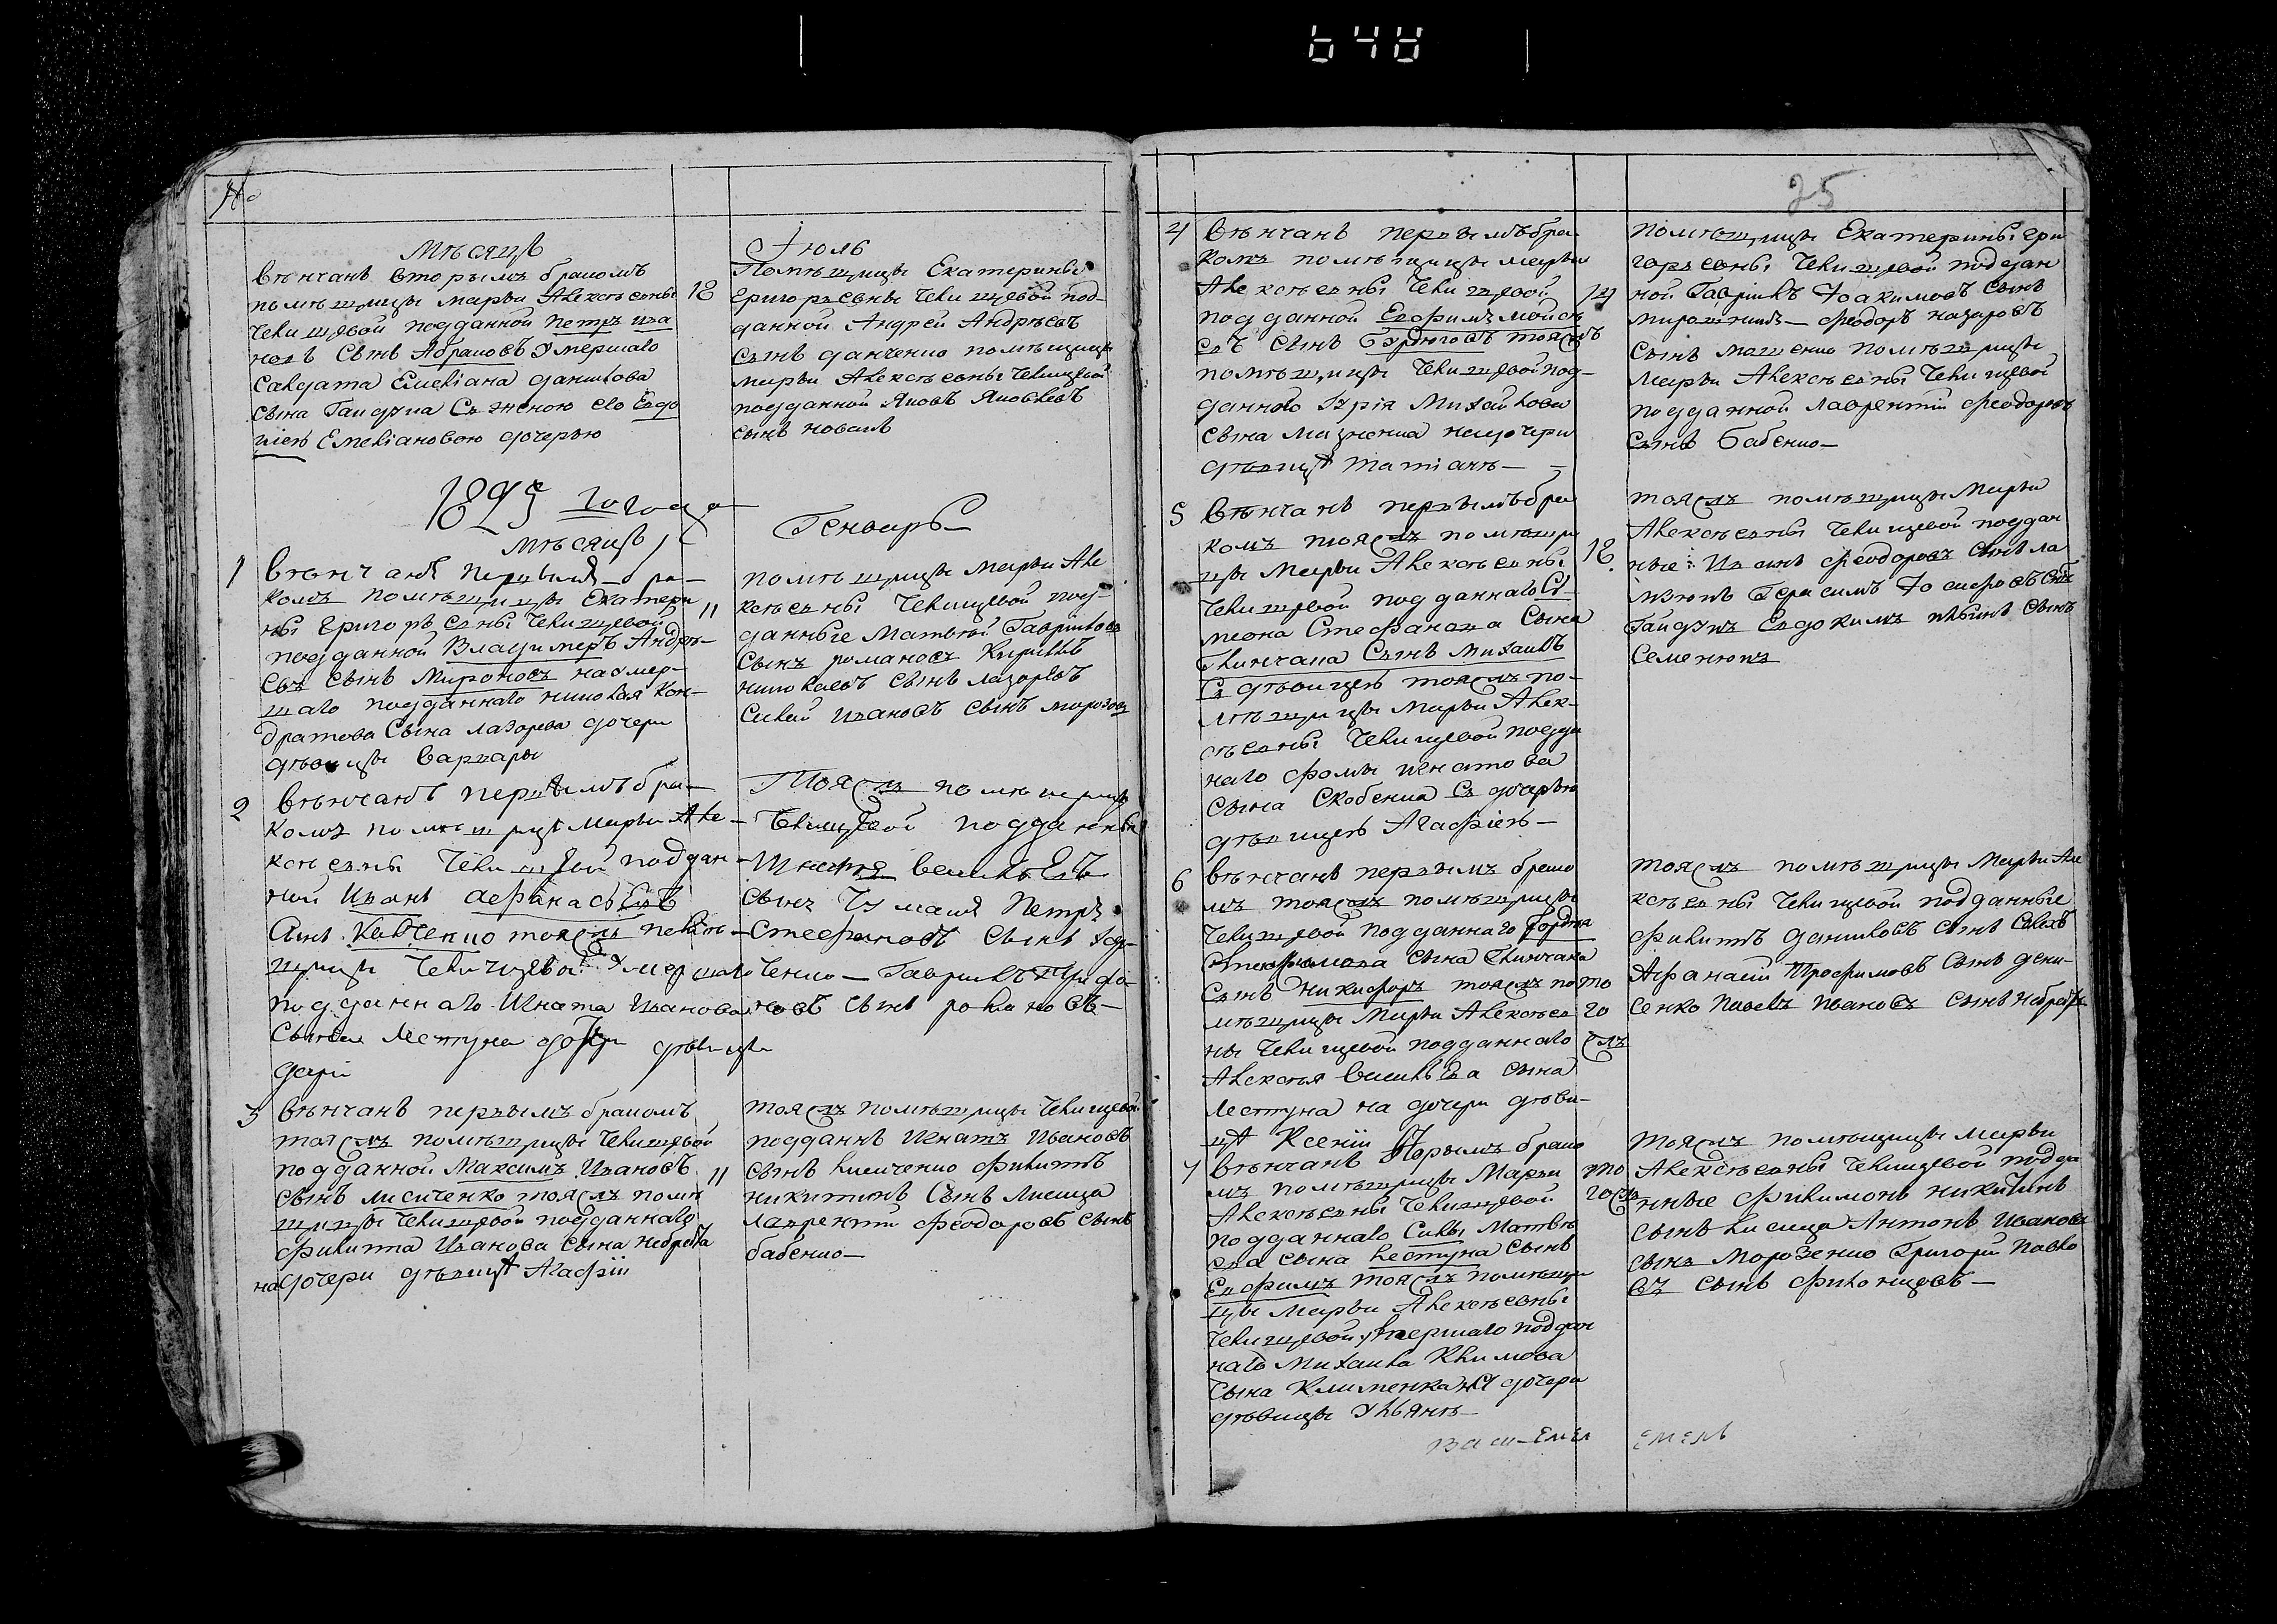 648
№
Мѣсяцъ
вѣнчанъ вторымъ бракомъ
помѣщицы Марьи Алексѣевны
Чекищевой подданной Петръ Ива
новъ сынъ Абрамовъ умершаго
салдата Емелiана Данилова
сына Гайдука съ женою его Евдо
кiею Емелiановою дочерью
18
Iюль
Помѣщицы Екатерины
Григорьевны Чекищевой под-
данной Андрей Андрѣевъ
сынъ Данченко помѣщицы
Марьи Алексѣевны Чекищевой
подданной Яковъ Яковлевъ
сынъ новакъ
1825 го года
мѣсяцъ
Генварь
1
вѣнчанъ первымъ бра-
комъ помѣщицы Екатери
ны Григорьевны Чекищевой
подданной Владимеръ Андрѣ-
евъ сынъ Мироновъ на умер-
шаго подданнаго Николая Кон-
дратова сына лазорева дочери
дѣвицы Варвары
11
помѣщицы Марьи Але
ксѣевны Чекищевой под-
данные Матвѣй Гавриловъ
сынъ романовъ Кирилъ
николаевъ сынъ лазоревъ
Сисой Ивановъ сынъ морозов
2
вѣнчанъ первымъ бра-
комъ помѣщицы Марьи Але-
ксѣевны Чекищевой поддан-
ной Иванъ Афанасьевъ
сынъ тояжъ помѣ-
щицы Чекищевой умершаго
подданнаго Игната Иванова
сына Лестуна дочери дѣвицы
Дарiи
Тояжъ помѣщицы
Чекищевой подданны
Васильевъ
сынъ Чумакъ Петръ
Стефановъ сынъ
ченко — Гавриилъ
новъ сынъ романовъ —
3
вѣнчанъ первымъ бракомъ
тояжъ помѣщицы Чекищевой
подданной Максимъ Ивановъ
сынъ лисиченко тояжъ помѣ
щицы Чекищевой подданнаго
Филиппа Иванова сына
на дочери дѣвицѣ Агафiи
11
тояжъ помѣщицы Чекищевой
подданнѣ Игнатъ Ивановъ
сынъ лисиченко Филиппъ
никитинъ сынъ Лисица
лаврентiй Феодоровъ сынъ
бабенко —
25
4
вѣнчанъ первымъ бра-
комъ помѣщицы Марьи
Алексѣевны Чекищевой
подданной Евфимъ Моисѣ
евъ сынъ тояжъ
помѣщицы Чекищевой под-
даннаго Гурiя Михайлова
сына на дочери
дѣвицѣ Татiанѣ —
14
помѣщицы Екатерины Гри
горьевны Чекищевой поддан
ной Гавриилъ Iоакимовъ сынъ
мирошникъ — Феодоръ назаровъ
сынъ помѣщицы
Марьи Алексѣевны Чекищевой
подданной Лаврентiй Феодоровъ
сынъ Бабенко —
5
вѣнчанъ первымъ бра
комъ тояжъ помѣщи
цы Марьи Алексѣевны
Чекищевой подданнаго Си-
меона Стефанова сына
сынъ Михаилъ
съ дѣвицею тояжъ по-
мѣщицы Марьи Алек-
сѣевны Чекищевой подда
наго Фомы Игнатова
сына Скобенка съ дочерью
дѣвицею Агафiею —
18
тояжъ помѣщицы Марьи
Алексѣевны Чекищевой поддан
ные: Иванъ Феодоровъ сынъ ла
Герасимъ Iосифовъ сынъ
Гайдукъ Евдокимъ сынъ
Семенюкъ
6
вѣнчанъ первымъ брако
мъ тояжъ помѣщицы
Чекищевой подданнаго
сына
сынъ Никифоръ тояжъ по
мѣщицы Марьи Алексѣев
ны Чекищевой подданнаго
Алексѣя Васильева сына
Лестуна на дочери дѣви-
цѣ Ксенiи
то
го
жъ
тояжъ помѣщицы Марьи Але
ксѣевны Чекищевой подданные
Филиппъ Даниловъ сынъ
Афанасiй Трофимовъ сынъ дени-
сенко Павелъ Ивановъ сынъ
7
вѣнчанъ вторымъ брако
мъ помѣщицы Марьи
Алексѣевны Чекищевой
подданнаго Силы Матвѣ
ева сына Лестуна сынъ
Евфимъ тояжъ помѣщи
цы Марьи Алексѣевны
Чекищевой умершаго поддан
наго Михаила Климова
сына Клименка на дочери
дѣвицы Ульянѣ —
то
гожъ
тояжъ помѣщицы Марьи
Алексѣевны Чекищевой подда
нные Филимонъ никитинъ
сынъ Лисица Антонъ Ивановъ
сынъ Морозенко Григорiй Павло
въ сынъ